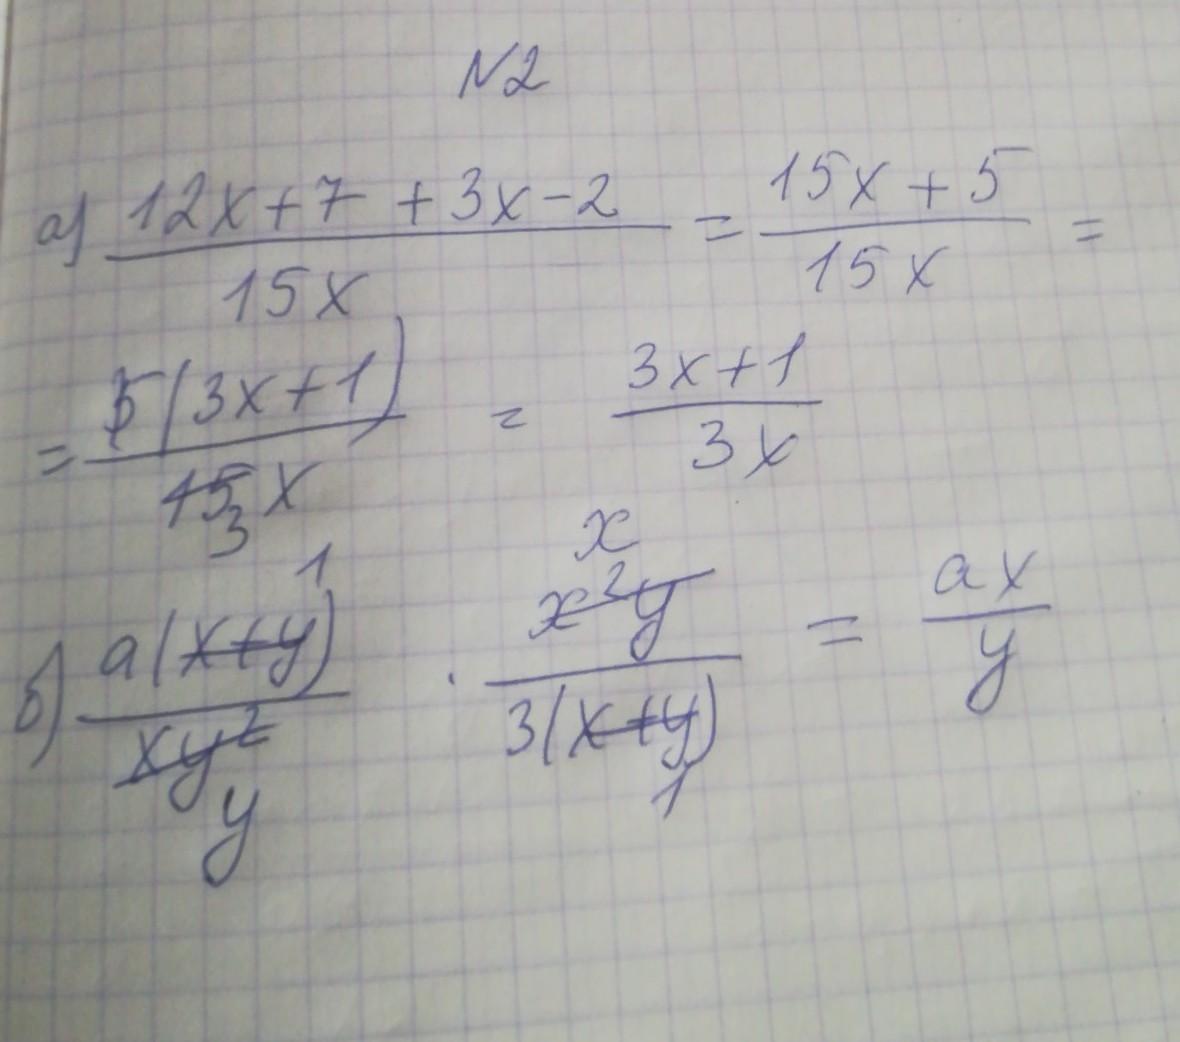 N2
а) (12x+7+3x-2)/(15x) = (15x+5)/(15x) =
= 5(3x+1)/(15x) 3 = (3x+1)/(3x)
б) a(x+y) 1/(xy² y) · x x²y/(3(x+y) 1) = ax/y